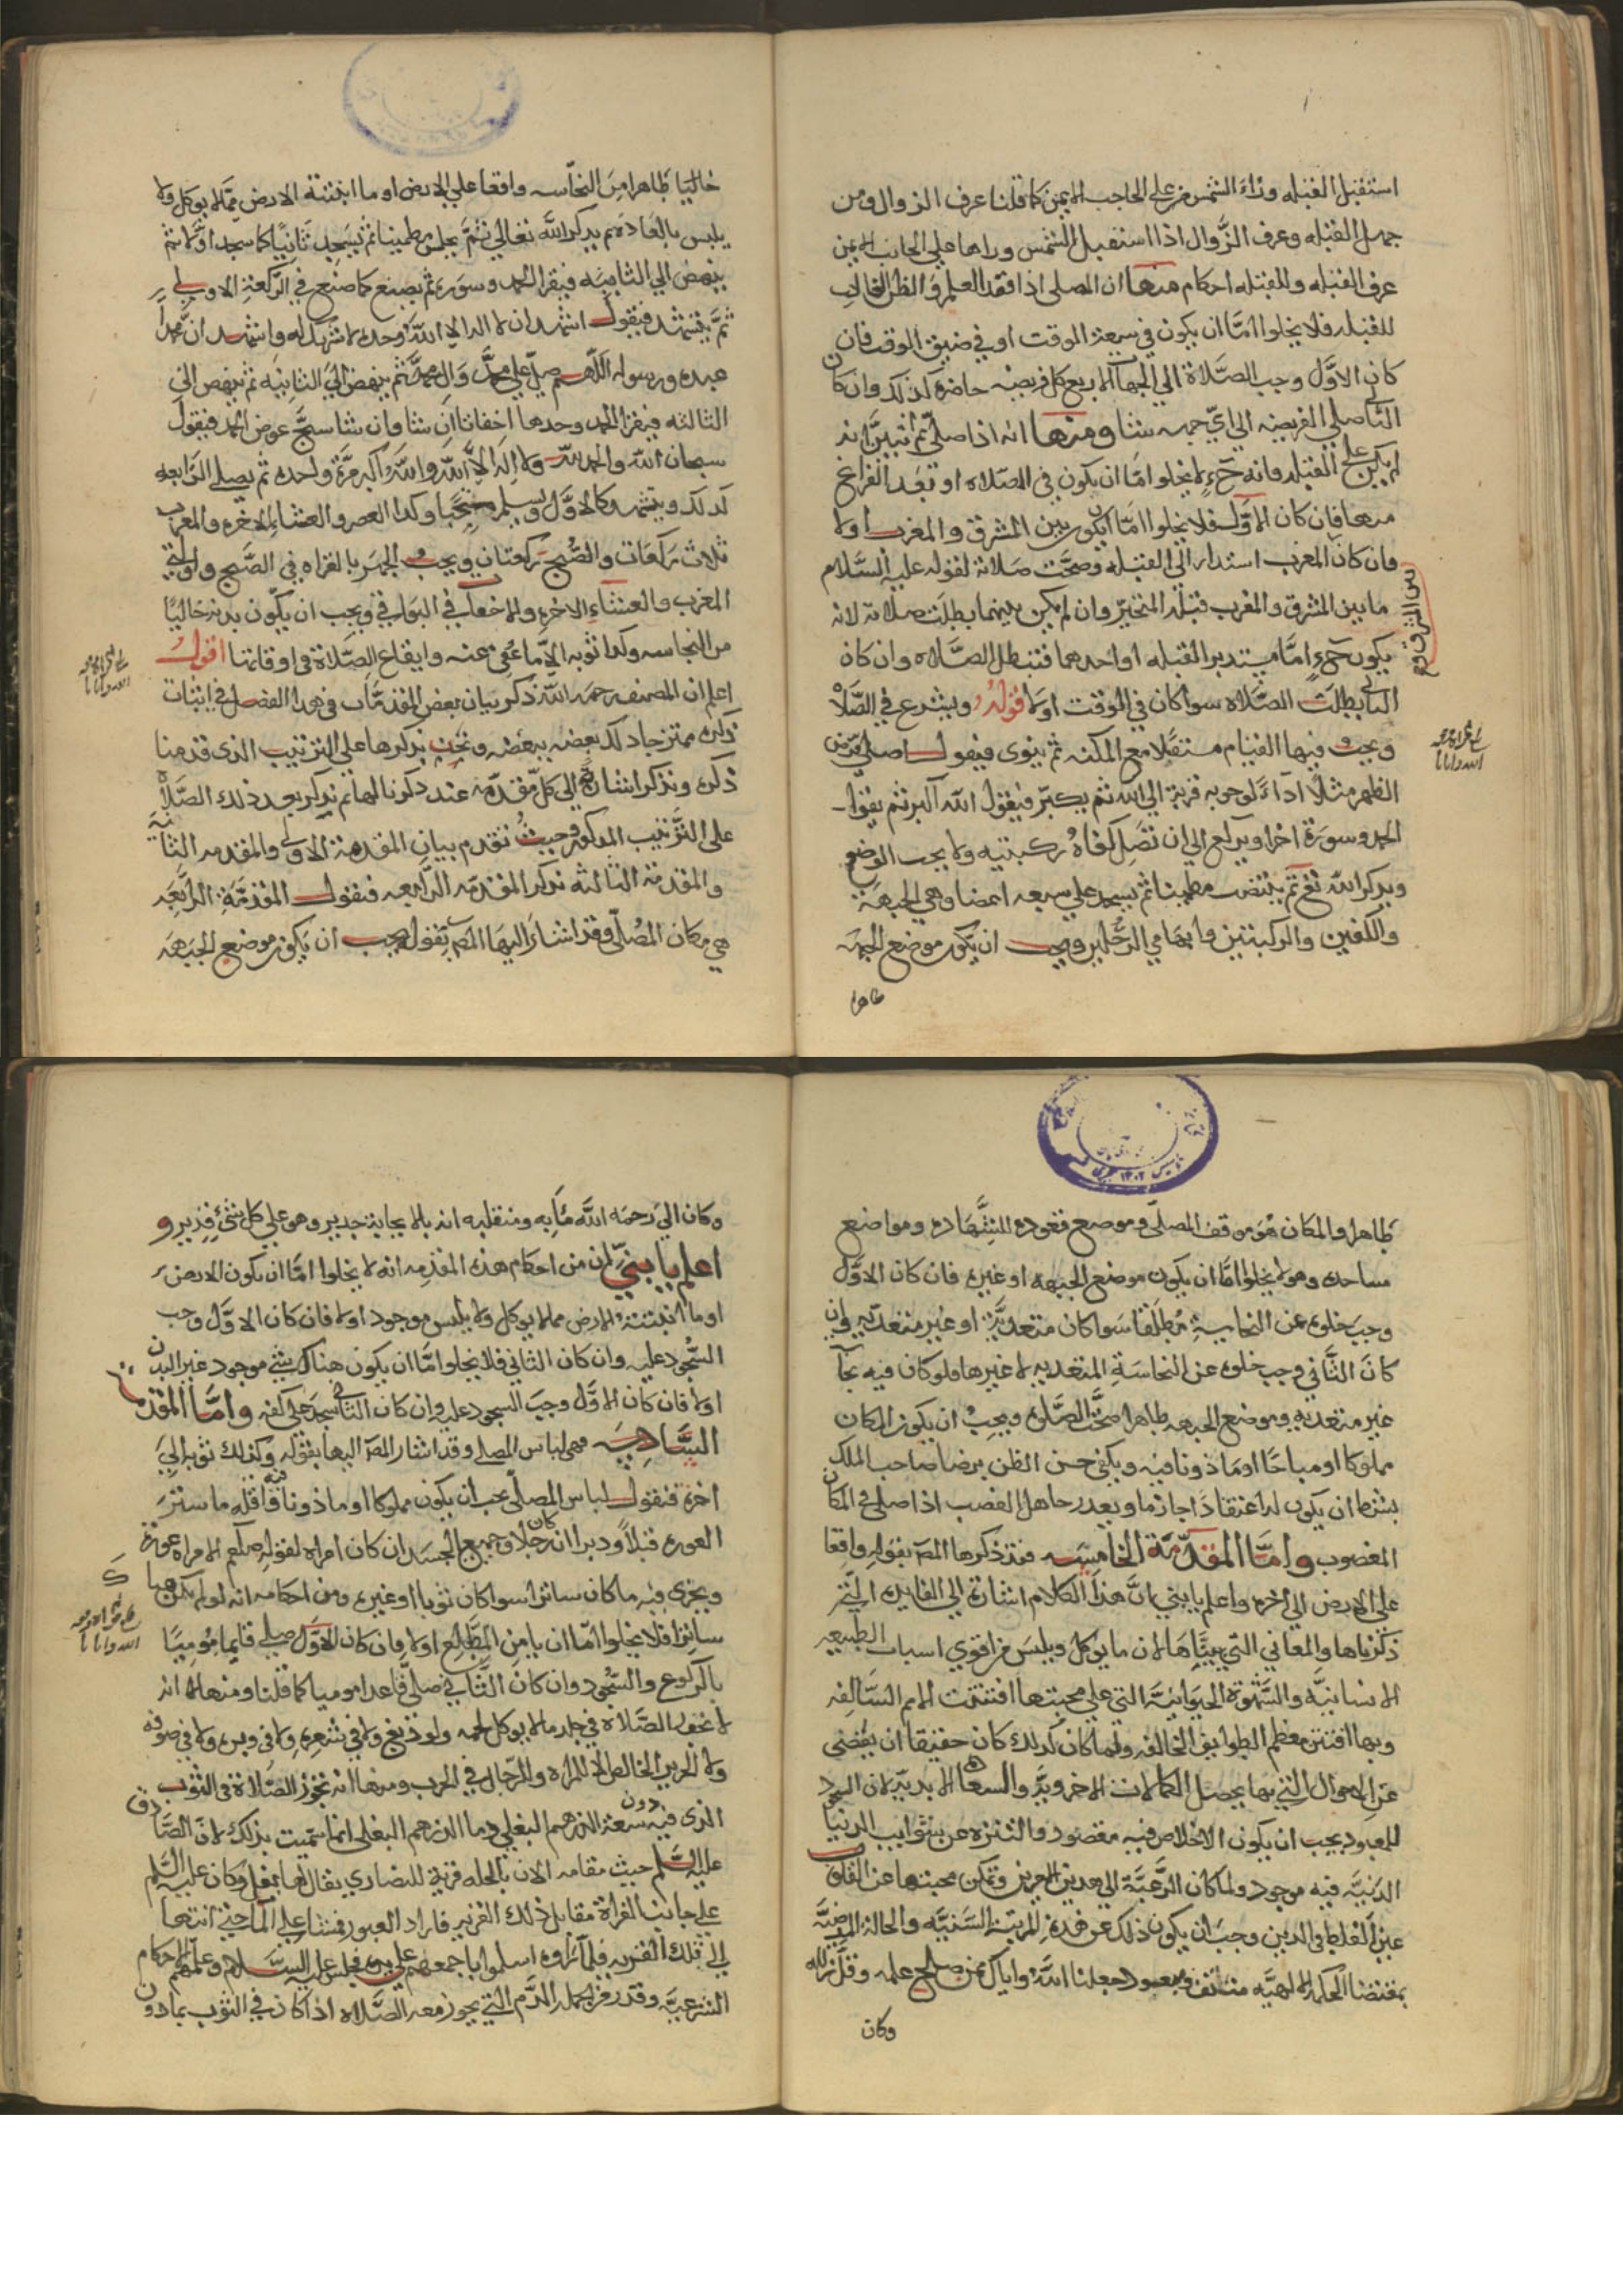 استقبل القبله وراء الشمس مر علي الحاجب الايمن كما قلنا عرف الزوال ومن
جهل القبله وعرف الزوال اذا استقبل الشمس وراها علي الجانب الايمن
عرف القبله وللقبله احكام منها ان المصلي اذا فقد العلم والظن الغالب
للقبله فلا يخلوا امّا ان يكون في سعة الوقت او في ضيق الوقت فان
كان الاوّل وجب الصّلاة الي الجهات الاربع كل فريضه حاضره كذلك وان كان
الثاني صلي الفريضه الي ايّ جهه شا ومنها انه اذا صلي ثم تبيّن انه
لم يكن علي القبله فانه حَ لا يخلوا امّا ان يكون في الصّلاه او بَعد الفراغ
منها فان كان الاوّل فلا يخلوا امّا ان يكون بين المشرق والمغرب او لا
فان كان المغرب استدار الي القبله وصحّت صلاته لقوله عليه السّلام
ما بين المشرق والمغرب قبلة المتحيّر وان لم يكن بينهما بطلت صلاته لانه
يكون حَ امّا مستدبر القبله او احدهما فتبطل الصّلاه وان كان
الثاني بطلت الصّلاه سوا كان في الوقت اولا قوله ويشرع في الصّلاه
ويجب فيها القيام مستقلا مع المكنه ثم ينوي فيقول اصلي فرض
الظهر مثلا اداءً لوجوبه قربة الي الله ثم يكبّر فيقول الله اكبر ثم يقرا
الحمد وسورة اخرا ويركع الي ان تصل كفاه ركبتيه ولا يجب الوضع
ويذكر الله تع ثم ينتصب مطمينا ثم يسجد علي سبعه اعضا وهي الجبهة
والكفين والركبتين وابهامي الرّجلين ويجب ان يكون موضع الجبهه
طاهرا
خاليا طاهرا من النجاسه واقعا علي الارض او ما انبتته الارض ممّا لا يوكل ولا
يلبس بالعاده ثم يذكر الله تعالي ثمّ يجلس مطمينا ثم يسجد ثانيًا كما سجد اوّلا ثم
ينهض الي الثانيه فيقرا الحمد وسوره ثم يصنع كما صنع في الرّكعة الاولي
ثمّ يتشهد فيقول اشهد ان لا اله الا الله وحده لا شريك له واشهد انّ محمدًا
عبده ورسوله اللّهم صلّ علي محمّد وآل محمّد ثم ينهض الي الثانيه ثم ينهض الي
الثالثه فيقرا الحمد وحدها اخفاتا ان شا وان شا سبّح عوض الحمد فيقول
سبحان الله والحمد لله ولا اله الاّ الله والله اكبر مرّة واحده ثم يصلي الرّابعه
كذلك ويتشهد كالاوّل ويسلم مستحبًا وكذا العصر والعشاء الاخره والمغرب
ثلاث ركعات والصُّبح ركعتان ويجب الجهر بالقراه في الصّبح واولتي
المغرب والعشاءِ الاخره والاخفات في البواقي ويجب ان يكون بدنه خاليًا
من النجاسه وكذا ثوبه الاّ ما عُفي عنه وايقاع الصّلاة في اوقاتها اقول
اعلم ان المصنف رحمه الله ذكر بيان بعض المقدمّات في هذا الفصل في اثبات
ذكره ممتزجا كذلك بعضه ببعضه ونحن نذكرها علي الترتيب الذي قدمنا
ذكره ونذكر اشاره الي كل مقدّمه عند ذكرنا لها ثم نذكر بعد ذلك الصّلاة
علي الترتيب المذكور وحيثُ تقدم بيان المقدمة الاولي والمقدمه الثانية
والمقدمة الثالثه نذكر المقدّمه الرّابعه فنقول المقدّمة الرّابعه
هي مكان المُصلّي وقد اشار اليها المص بقوله ويجب ان يكون موضع الجبهه
طاهرا والمكان هو موقف المصلّي وموضع قعوده للتشهّد ومواضع
مساجده وهو لا يخلوا امّا ان يكون موضع الجبهه او غيره فان كان الاوّل
وجب خلوه عن النجاسةِ مُطلقا سوا كان متعديّة او غير متعديه وان
كانَ الثّاني وجب خلوه عن النجاسة المتعديه لا غيرها فلو كان فيه نجاسة
غير متعديه وموضع الجبهه طاهرا صحّت الصّلوه ويجب ان يكون المكان
مملوكا او مباحًا او ماذونا فيه ويكفي حسن الظن برضا صاحب الملك
بشرط ان يكون له اعتقادًا جازما ويعذر جاهل الغصب اذا صلي في المكان
المغصوب وامّا المقدّمة الخامسه فقد ذكرها المصَ بقوله واقعا
علي الارض الي اخره واعلم يا بني انَّ هذا الكلام اشارة الي الفايده التي
ذكرناها والمعاني التي بيّناها لان ما يوكل ويلبس من اقوي اسباب الطبيعه
الانسانيّه والشّهوة الحيوانيّه التي علي محبتها افتتنت الامم السّالفه
وبها افتتن معظم الطوايف الخالفه ولما كان كذلك كان حقيقا ان يُفضي
عن الاحوال التي بها يحصل الكمالات الاخرويّه والسعاده الابديّه لان السجود
للمعبود يجب ان يكون الاخلاص فيه مقصود والتنزه عن شوايب الدنيا
الدنيّه فيه موجود ولما كان الرّغبَة الي هذين الامرين وتمكن محبتها عن القلوب
عين الغلط في الدين وجب ان يكون ذلك عن هذهِ المرتبة السَنيّه والحالة المرضيّه
بمقتضا الحكمة الالهيّه منتف ومبعود جعلنا الله واياك ممن صلح علمه وقلّ زلله
وكان
وكان الي رحمه الله مآبه ومنقلبه انه بالاجابة جدير وهو علي كل شئ قدير و
اعلم يا بنيّ ان من احكام هذه المقدمه انه لا يخلوا امّا ان يكون الارض
او ما انبتتهُ الارض مما لا يوكل ولا يلبس موجود اولا فان كان الاوّل وجب
السّجود عليه وان كان الثاني فلا يخلوا امّا ان يكون هناك شئ موجود غير البدن
اولا فان كان الاوّل وجبَ السجود عليه وان كان الثاني سجد علي كفه وامّا المقدمة
السّادسة فهي لباس المصلي وقد اشار المصَ اليها بقوله وكذلك ثوبه الي
اخره فنقول لباس المصلّي يجب ان يكون مملوكا او ماذونا فيه واقله ما ستر
العوره قبلاً ودبرا ان كان رجلا وجميع الجسد ان كان امراه لقوله صلعم الامراه عورة
ويجزي فيه ما كان ساترا سوا كان ثوبا او غيره ومن احكامه انه لو لم يكن هنا
ساترا فلا يخلوا امّا ان يامن المطَّلع اولا فان كان الاوّل صلي قايما مُوميًا
بالركوع والسّجود وان كان الثّاني صلّي قاعدا موميا كما قلنا ومنها انه
لا تجوز الصّلاة في جلد ما لا يوكل لحمه ولو ذبغ ولا في شعره ولا في وبره ولا في صوفه
ولا الحرير الخالص الا للمراه والرّجال في الحرب ومنها انه تجوز الصّلاة في الثوب
الذي فيه دون سعة الدرهم البغلي وما الدرهم البغلي انما سُمّيت بذلك لانّ الصّادق
عليه السّلم حيث مقامه الان بالحله قرية للنصاري يقال لها بغل وكان عليه السّلم
علي جانب الفراة مقابل ذلك القريه فاراد العبور فمشا علي الماء حتي انتها
الي تلك القريه فلمّا راوه اسلموا باجمعهم علي يديه فجلس عليه السّلام وعلّمهم الاحكام
الشرعيّه وقدر من جمله الدّم التي يجوز معه الصّلاه اذا كان في الثوب بما دون